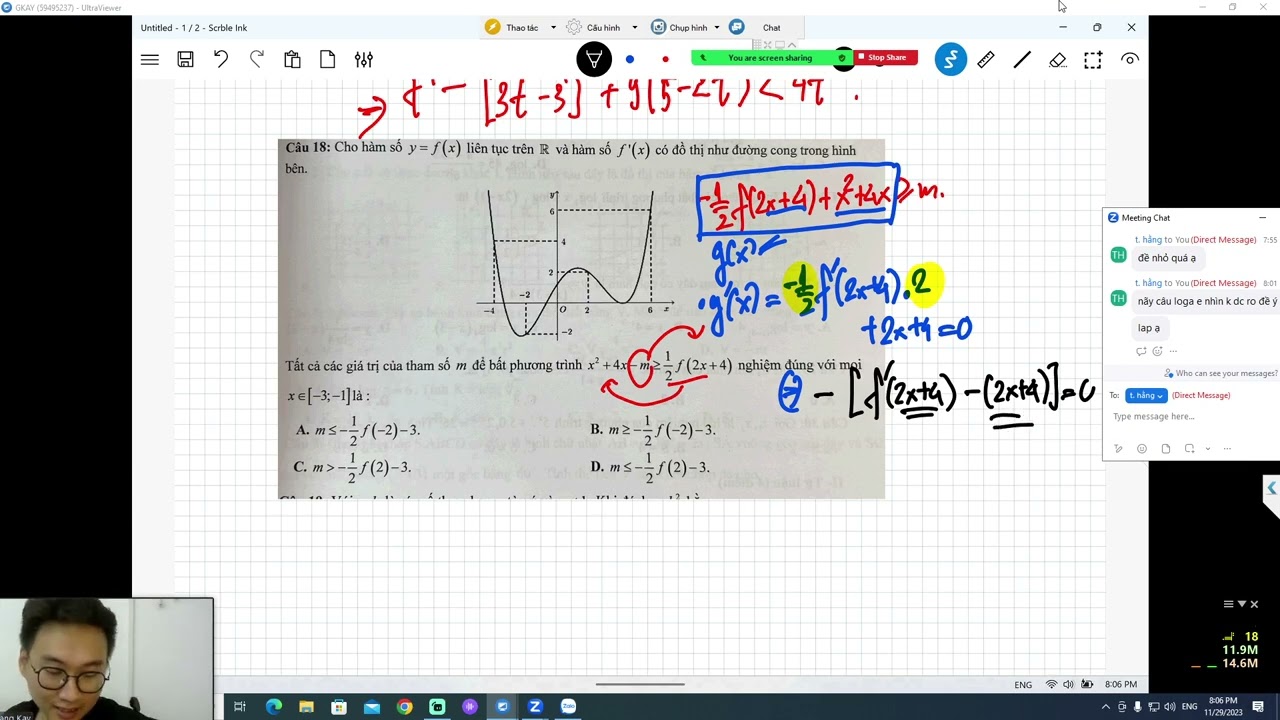 GKAY (59495237) - UltraViewer
Untitled - 1 / 2 - Scrble Ink
Thao tác
Cấu hình
Chụp hình
Chat
You are screen sharing
Stop Share
Câu 18: Cho hàm số y = f(x) liên tục trên ℝ và hàm số f '(x) có đồ thị như đường cong trong hình
bên.
y
6
4
2
-2
-4
O
2
6
x
-2
-1/2 f(2x+4) + x²+4x ≥ m.
g(x)
• g'(x) = -1/2 f'(2x+4).2
+2x+4=0
⇔ - [f'(2x+4) - (2x+4)] = 0
Tất cả các giá trị của tham số m để bất phương trình x² + 4x - m ≥ 1/2 f(2x+4) nghiệm đúng với mọi
x ∈ [-3;-1] là :
A. m ≤ -1/2 f(-2) - 3.
B. m ≥ -1/2 f(-2) - 3.
C. m > -1/2 f(2) - 3.
D. m ≤ -1/2 f(2) - 3.
Meeting Chat
t. hằng to You (Direct Message) 7:55
TH
đề nhỏ quá ạ
t. hằng to You (Direct Message) 8:01
TH
nãy câu loga e nhìn k dc ro đề ý
lap ạ
Who can see your messages?
To: t. hằng (Direct Message)
Type message here...
18
11.9M
14.6M
ENG
8:06 PM
ENG
8:06 PM
11/29/2023